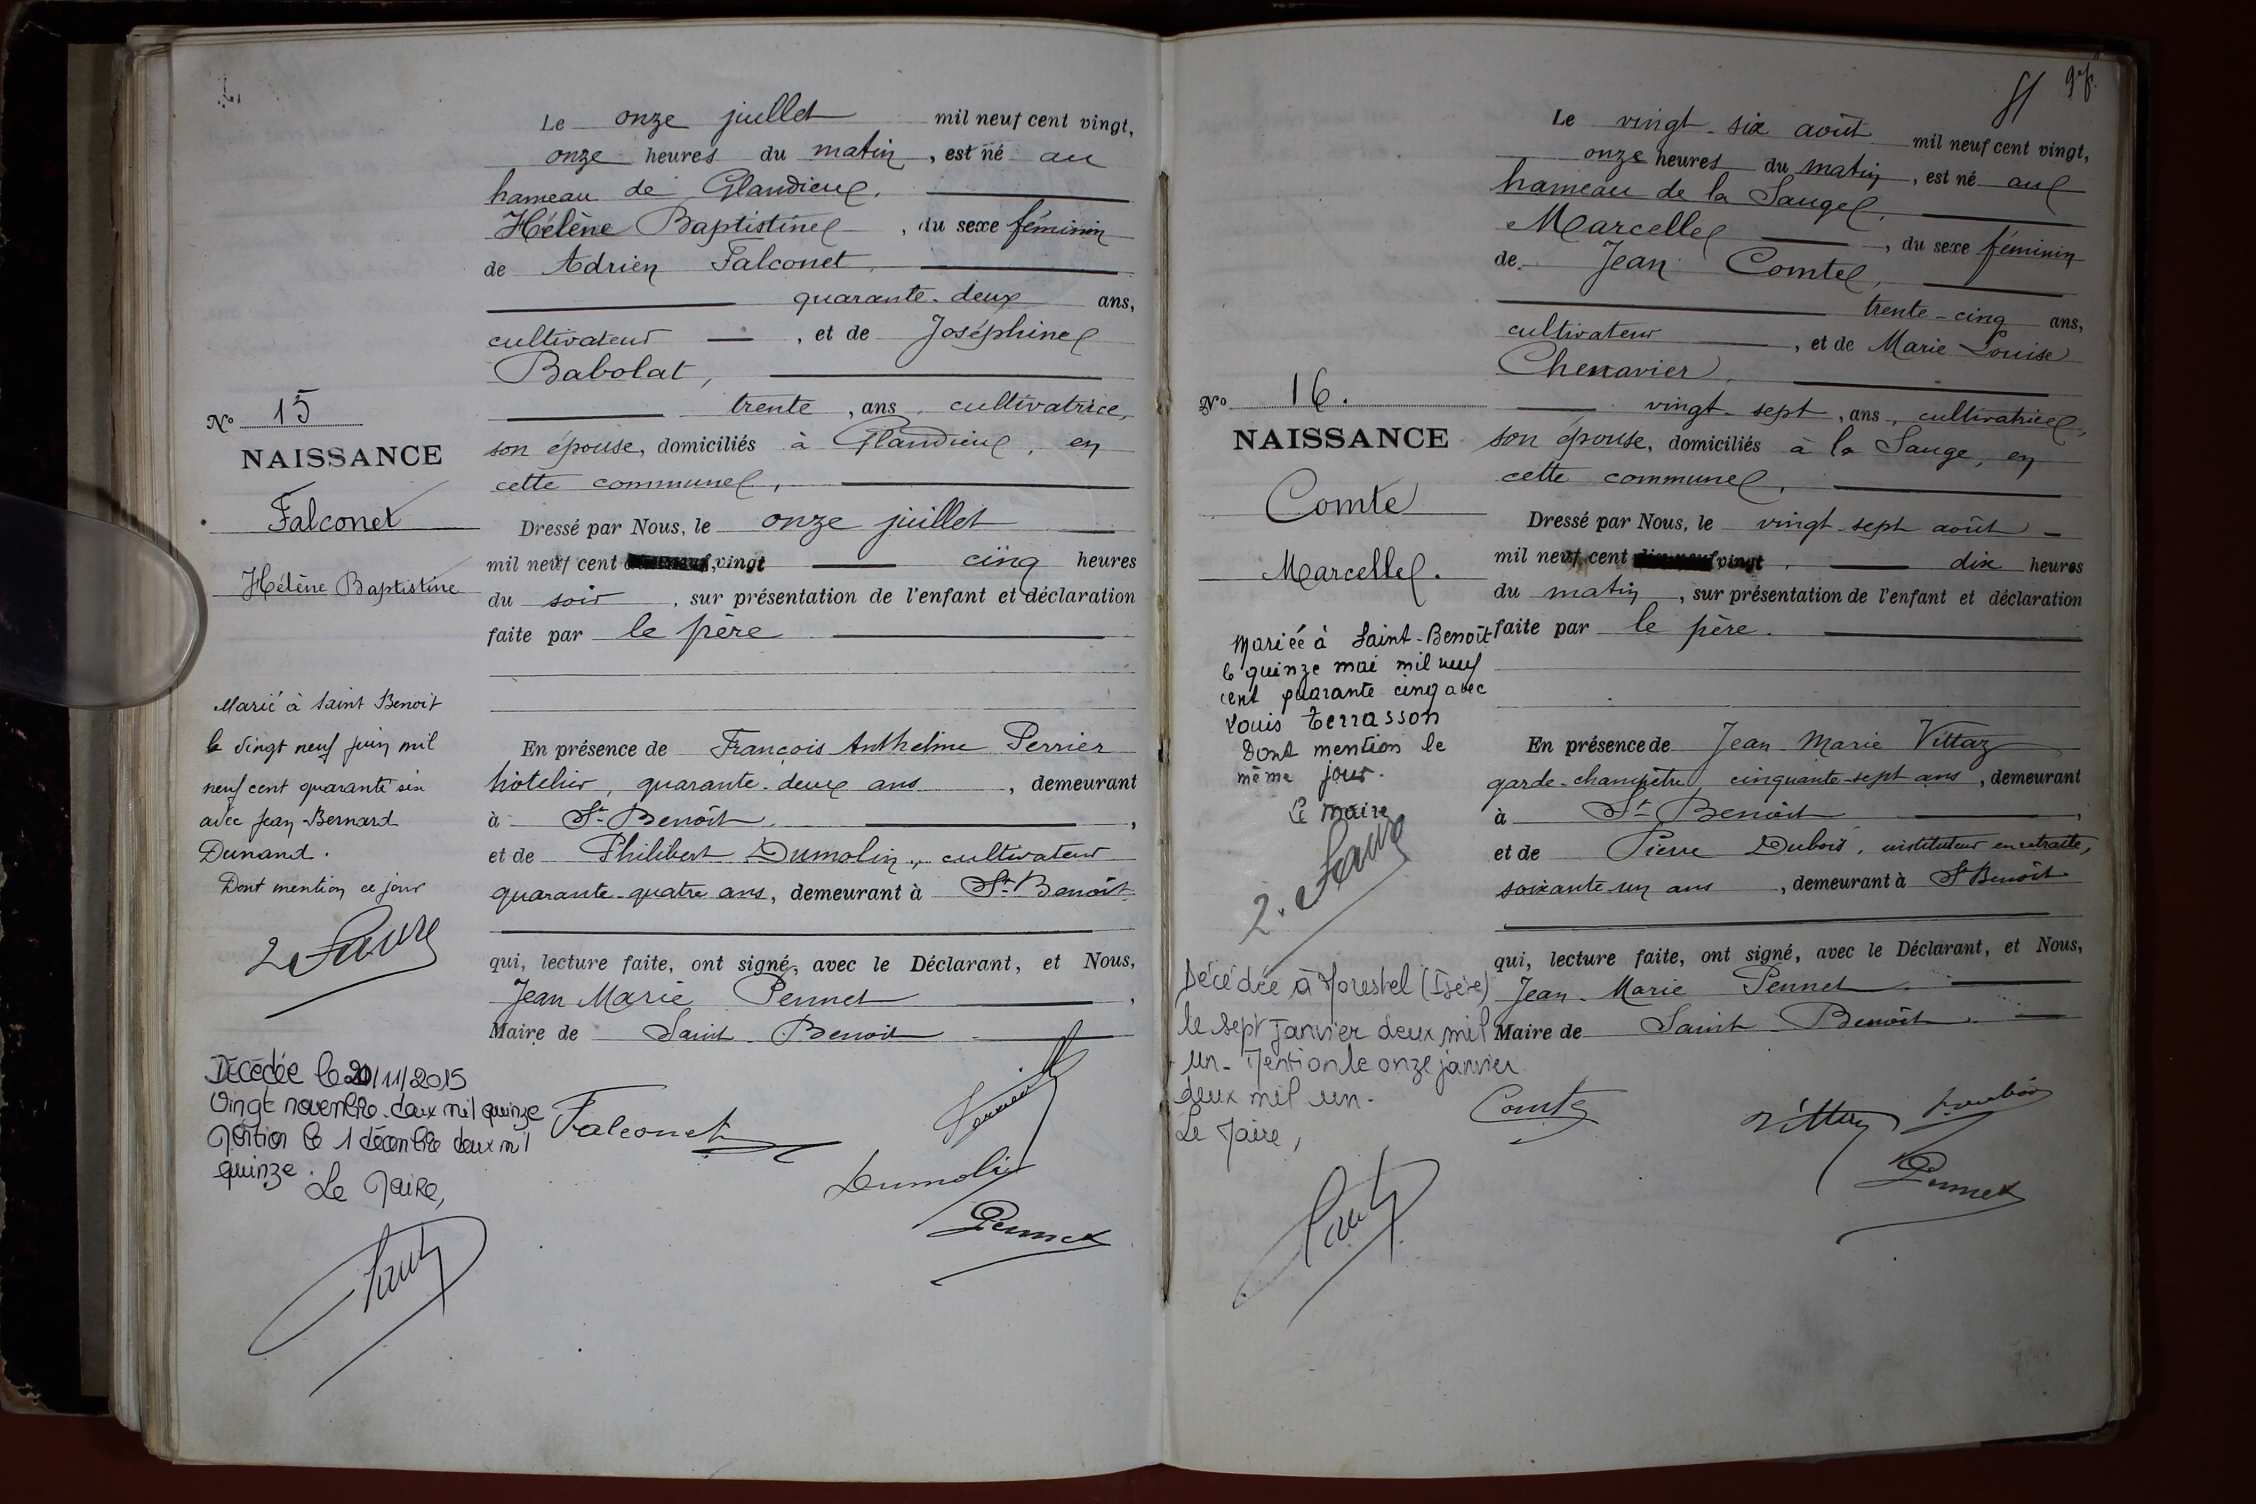 Le onze juillet mil neuf cent vingt,
onze heures du matin, est né au
hameau de Glandieu,
Hélène Baptistine, du sexe féminin
de Adrien Falconet,
quarante-deux ans,
cultivateur, et de Joséphine
Babolat,
trente, ans, cultivatrice,
son épouse, domiciliés à Glandieu, en
cette commune,
Dressé par Nous, le onze juillet
mil neuf cent vingt cinq heures
du soir, sur présentation de l'enfant et déclaration
faite par le père
En présence de François Anthelme Perrier
hôtelier, quarante-deux ans, demeurant
à St-Benoît,
et de Philibert Dumolin, cultivateur
quarante-quatre ans, demeurant à St-Benoît
qui, lecture faite, ont signé, avec le Déclarant, et Nous,
Jean Marie Pennet,
Maire de Saint-Benoit
Falconet
Dumolin
Pennet
No 15
NAISSANCE
Falconet
Hélène Baptistine
Marié à Saint Benoit
le vingt neuf juin mil
neuf cent quarante six
avec Jean-Bernard
Dunand.
Dont mention ce jour
Décédée le 20/11/2015
Vingt novembre deux mil quinze
Mention le 1 décembre deux mil
quinze.
Le Maire,
9e f.
Le vingt-six août mil neuf cent vingt,
onze heures du matin, est né au
hameau de la Sauge,
Marcelle, du sexe féminin
de Jean Comte,
trente-cinq ans,
cultivateur, et de Marie Louise
Chenavier,
vingt-sept, ans, cultivatrice,
son épouse, domiciliés à la Sauge, en
cette commune,
Dressé par Nous, le vingt-sept août
mil neuf cent vingt, dix heures
du matin, sur présentation de l'enfant et déclaration
faite par le père.
En présence de Jean-Marie Vittaz
garde-champêtre cinquante-sept ans, demeurant
à St-Benoît,
et de Pierre Dubois, instituteur en retraite,
soixante-un ans, demeurant à St Benoît
qui, lecture faite, ont signé, avec le Déclarant, et Nous,
Jean-Marie Pennet
Maire de Saint-Benoît.
Comte
Vittaz
Dubois
Pennet
No 16.
NAISSANCE
Comte
Marcelle.
Mariée à Saint-Benoît
le quinze mai mil neuf
cent quarante cinq avec
Louis Terrasson
Dont mention le
même jour.
Le maire
Décédée à Morestel (Isère)
le sept janvier deux mil
un - Mention le onze janvier
deux mil un.
Le Maire,